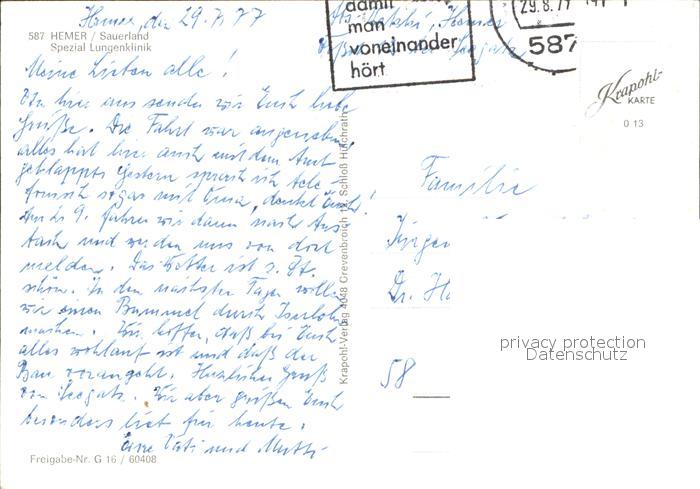 Hemer, den 29.7.77
587 HEMER / Sauerland
Spezial Lungenklinik
Meine Lieben alle!
Von hier aus senden wir Euch liebe
Grüße. Die Fahrt war angenehm,
alles hat hier auch mit dem Amt
geklappt. Gestern sprach ich tele-
fonisch sogar mit denkt Euch!
Am 9. fahren wir dann nach
und werden uns von dort
melden. Das Wetter ist z. Zt.
schön. In den nächsten Tagen wollen
wir einen Bummel durch Iserlohn
machen. Wir hoffen, daß bei Euch
alles wohlauf ist und daß der
Bau vorangeht. Herzlichen Gruß
von Wir aber grüßen Euch
besonders lieb für heute.
Eure Vati und Mutti
Freigabe-Nr. G 16 / 60408
Krapohl-Verlag 4048 Grevenbroich 12, Schloß Hülchrath
damit
man
voneinander
hört
29.8.77
587
Hemer
Krapohl-
KARTE
0 13
Familie
Jürgen
Dr.
58
privacy protection
Datenschutz